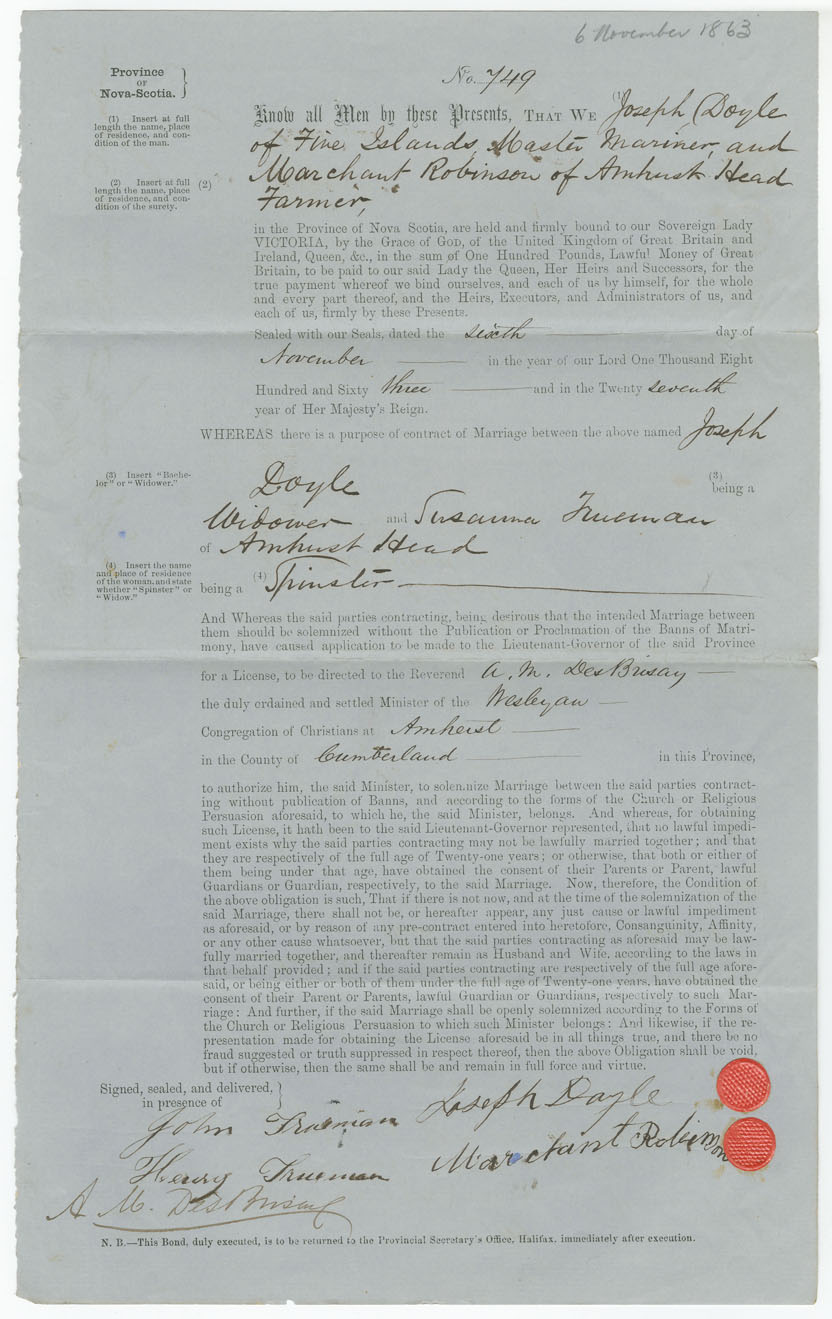 6 November 1863
Province
OF
Nova-Scotia. }
No. 749
(1) Insert at full
length the name, place
of residence, and con-
dition of the man.
Know all Men by these Presents, THAT WE (1) Joseph Doyle
of Five Islands, Master Mariner, and
(2) Insert at full
length the name, place
of residence, and con-
dition of the surety.
(2) Marchant Robinson of Amhust Head
Farmer,
in the Province of Nova Scotia, are held and firmly bound to our Sovereign Lady
VICTORIA, by the Grace of GOD, of the United Kingdom of Great Britain and
Ireland, Queen, &c., in the sum of One Hundred Pounds, Lawful Money of Great
Britain, to be paid to our said Lady the Queen, Her Heirs and Successors, for the
true payment whereof we bind ourselves, and each of us by himself, for the whole
and every part thereof, and the Heirs, Executors, and Administrators of us, and
each of us, firmly by these Presents.
Sealed with our Seals, dated the sixth day of
November in the year of our Lord One Thousand Eight
Hundred and Sixty three and in the Twenty seventh
year of Her Majesty's Reign.
WHEREAS there is a purpose of contract of Marriage between the above named Joseph
(3) Insert "Bache-
lor" or "Widower."
Doyle (3) being a
Widower and Susanna Trueman
of Amhust Head
(4) Insert the name
and place of residence
of the woman, and state
whether "Spinster" or
"Widow."
being a (4) Spinster
And Whereas the said parties contracting, being desirous that the intended Marriage between
them should be solemnized without the Publication or Proclamation of the Banns of Matri-
mony, have caused application to be made to the Lieutenant-Governor of the said Province
for a License, to be directed to the Reverend A. M. DesBrisay
the duly ordained and settled Minister of the Wesleyan
Congregation of Christians at Amherst
in the County of Cumberland in this Province,
to authorize him, the said Minister, to solemnize Marriage between the said parties contract-
ing without publication of Banns, and according to the forms of the Church or Religious
Persuasion aforesaid, to which he, the said Minister, belongs. And whereas, for obtaining
such License, it hath been to the said Lieutenant-Governor represented, that no lawful impedi-
ment exists why the said parties contracting may not be lawfully married together; and that
they are respectively of the full age of Twenty-one years; or otherwise, that both or either of
them being under that age, have obtained the consent of their Parents or Parent, lawful
Guardians or Guardian, respectively, to the said Marriage. Now, therefore, the Condition of
the above obligation is such, That if there is not now, and at the time of the solemnization of the
said Marriage, there shall not be, or hereafter appear, any just cause or lawful impediment
as aforesaid, or by reason of any pre-contract entered into heretofore, Consanguinity, Affinity,
or any other cause whatsoever, but that the said parties contracting as aforesaid may be law-
fully married together, and thereafter remain as Husband and Wife, according to the laws in
that behalf provided; and if the said parties contracting are respectively of the full age afore-
said, or being either or both of them under the full age of Twenty-one years, have obtained the
consent of their Parent or Parents, lawful Guardian or Guardians, respectively to such Mar-
riage: And further, if the said Marriage shall be openly solemnized according to the Forms of
the Church or Religious Persuasion to which such Minister belongs: And likewise, if the re-
presentation made for obtaining the License aforesaid be in all things true, and there be no
fraud suggested or truth suppressed in respect thereof, then the above Obligation shall be void,
but if otherwise, then the same shall be and remain in full force and virtue.
Signed, sealed, and delivered, }
in presence of
John Trueman Joseph Doyle
Henry Trueman Marchant Robinson
A M. DesBrisay
N. B.—This Bond, duly executed, is to be returned to the Provincial Secretary's Office, Halifax, immediately after execution.